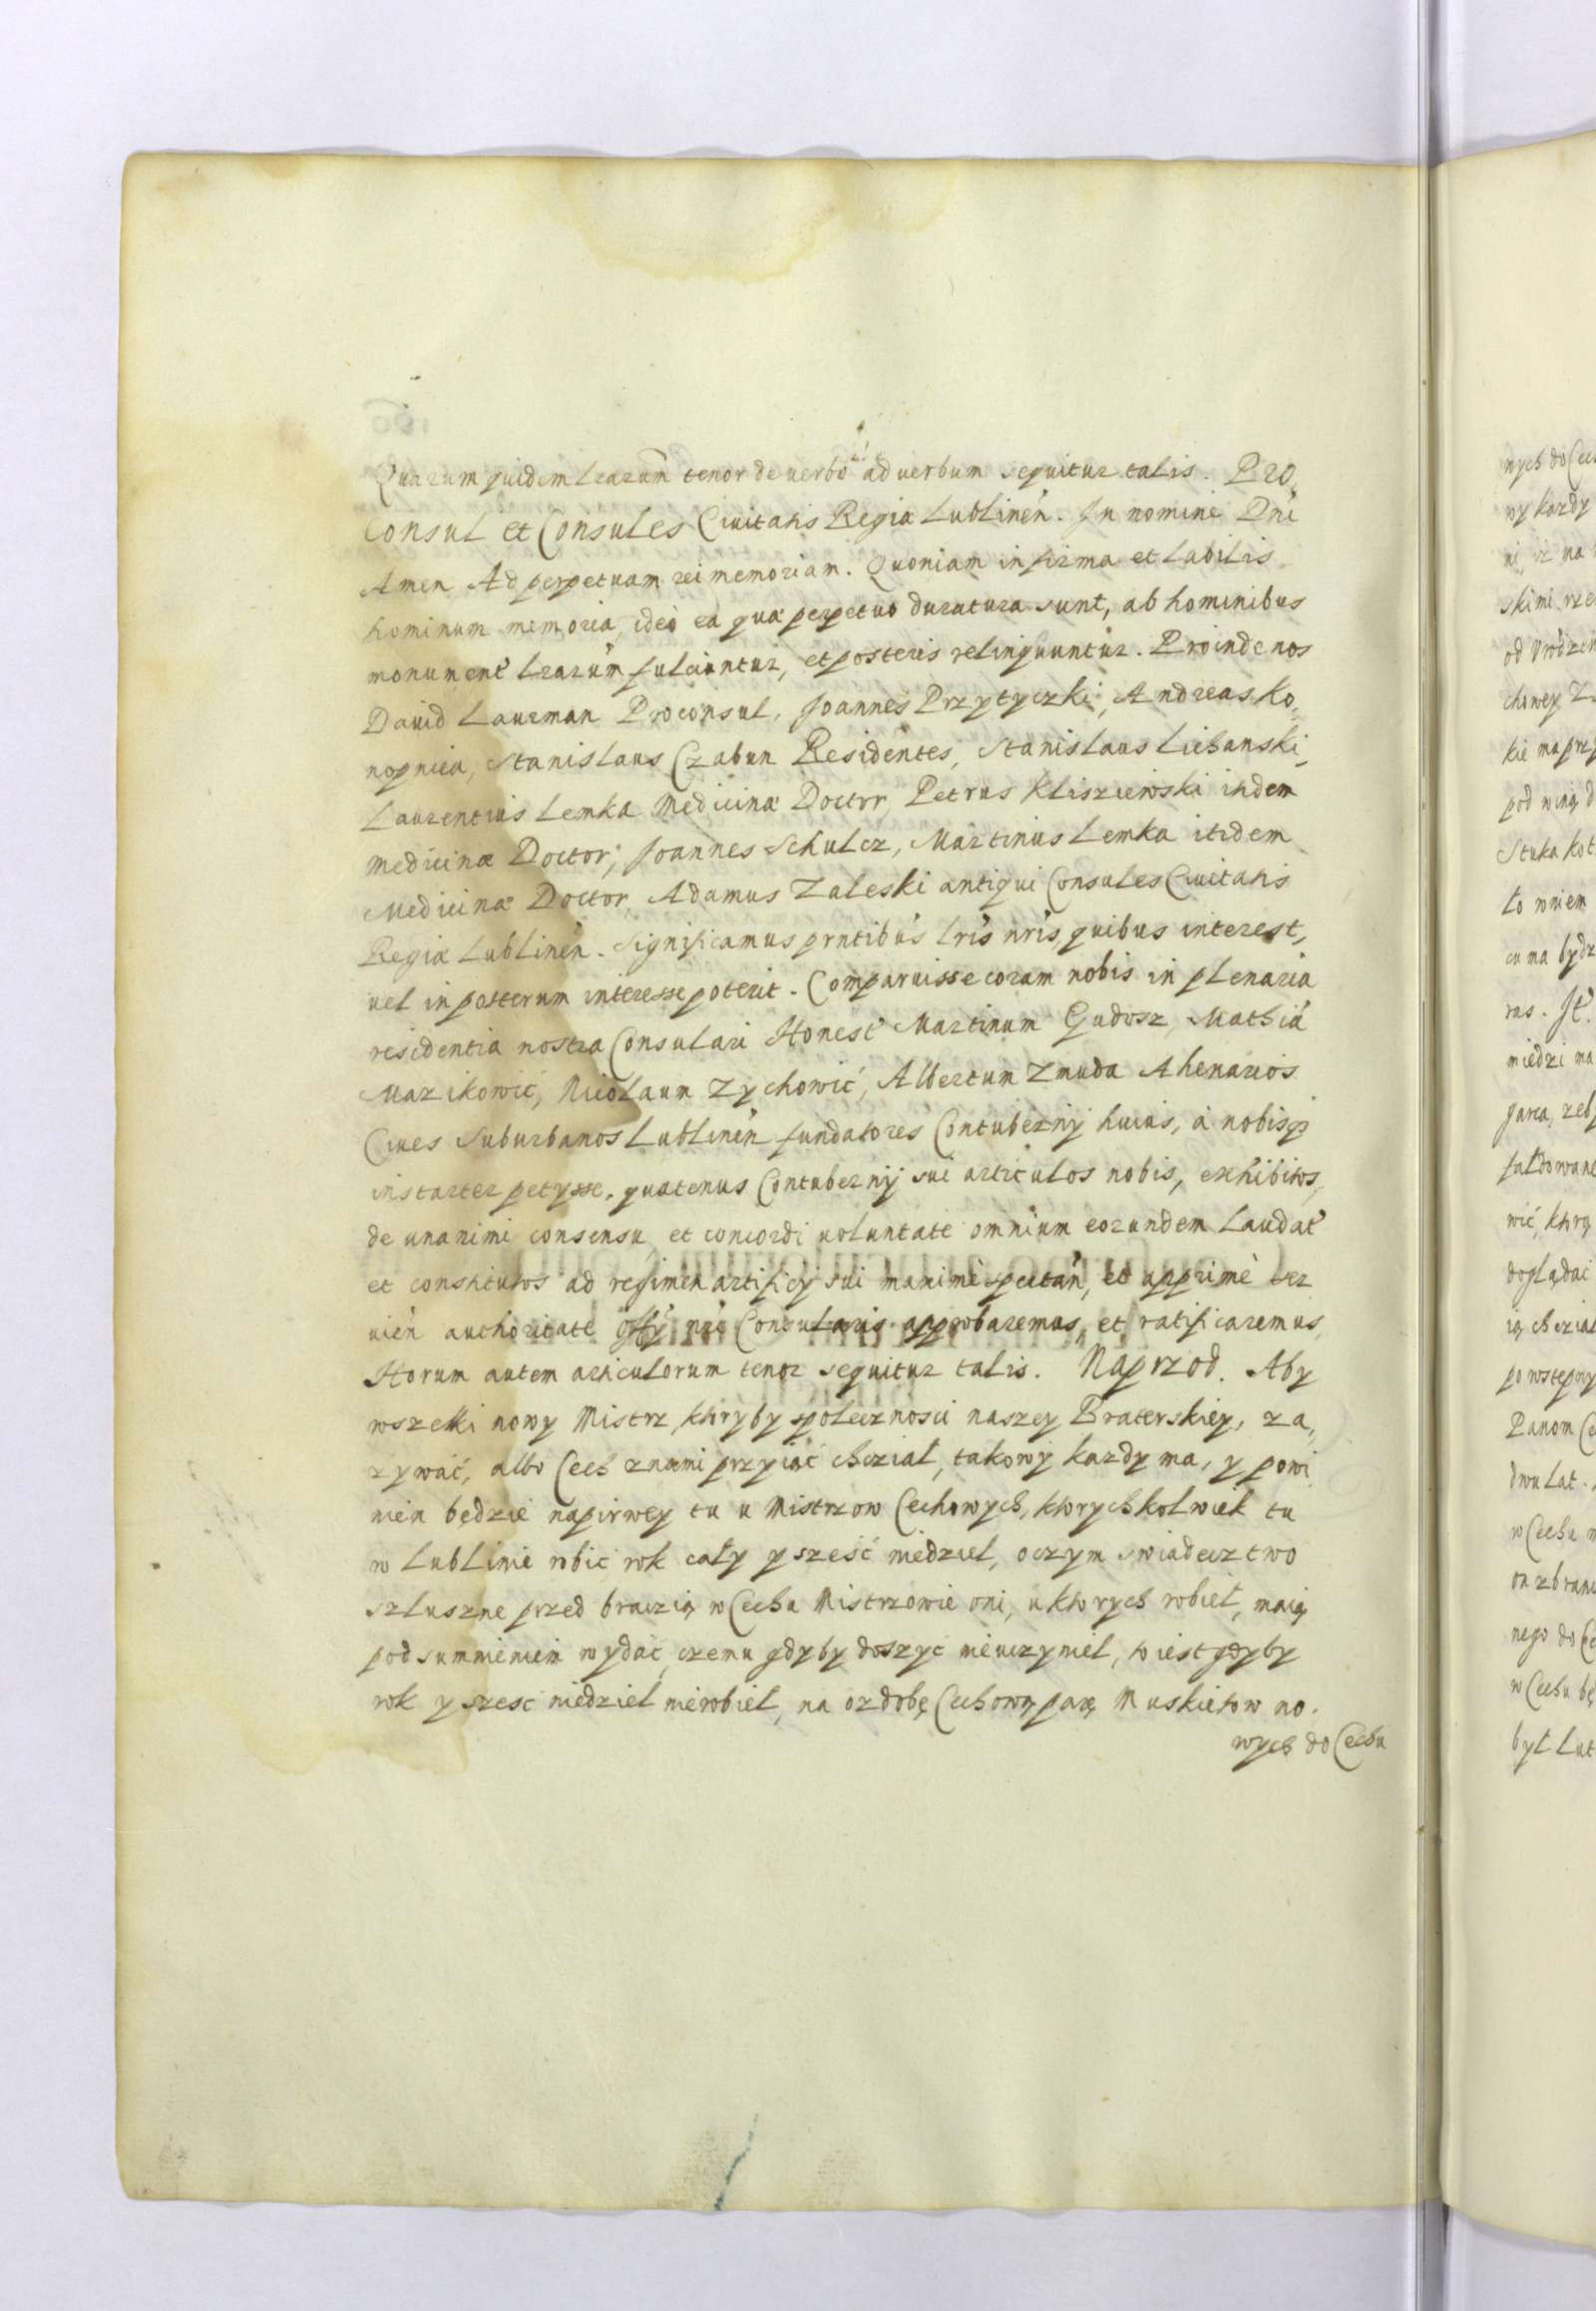 Quarum quidem Lrarum tenor de verbo ad verbum sequitur talis. Pro,
Consul et Consules Civitatis Regiæ Lublinen. In nomine Dni
Amen Ad perpetuam rei memoriam. Quoniam infirma et labilis
hominum memoria, ideò ea quæ perpetuo duratura sunt, ab hominibus
monument Lrarum fulciuntur, et posteris relinquuntur. Proinde nos
David Laurman Proconsul, Joannes Przytyczki, Andreas Ko,
nopnica, Stanislaus Czabun Residentes, Stanislaus Lichanski,
Laurentius Lemka Medicinæ Doctor, Petrus Kliszewski itidem
Medicinæ Doctor, Joannes Schulcz, Martinus Lemka itidem
Medicinæ Doctor, Adamus Zaleski antiqui Consules Civitatis
Regiæ Lublinen. Significamus prntibus lris nris, quibus interest,
vel in posterum interesse poterit. Comparuisse coram nobis in plenaria
residentia nostra Consulari Honest Martinum Gudosz, Mathiã
Mazikowic, Nicolaum Zychowic, Albertum Zmuda Ahenarios
Cives Suburbanos Lublinen fundatores Contubernij huius, à nobisq3
instanter petysse, quatenus Contubernij sui articulos nobis, exhibitos,
de unanimi consensu, et concordi voluntate omnium eorundem Laudat
et constitutos ad regimen artificij sui maximè spectan, et apprimè ser
vien authoritate offy nri Consularis approbaremus, et ratificaremus,
Horum autem articulorum tenor sequitur talis. Naprzod. Aby
wszelki nowy Mistrz, ktory by spolecznosci naszey Braterskiey, za,
zywać, albo Cech znami przyiąć chcział, takowy kazdy ma, y powi
nien będzie napirwey tu u Mistrzow Cechowych, ktorychkolwiek tu
w Lublinie robic rok cały y sześć niedziel, oczym swiadecztwo
szluszne przed braczią w Cechu Mistrzowie oni, u ktorych robieł, maią
pod sumnieniem wydać, czemu gdyby doszyc nieuczynieł, to iest gdyby
rok y szesc niedziel nierobieł, na ozdobę Cechową parę Muskietow no.
wych do Cechu